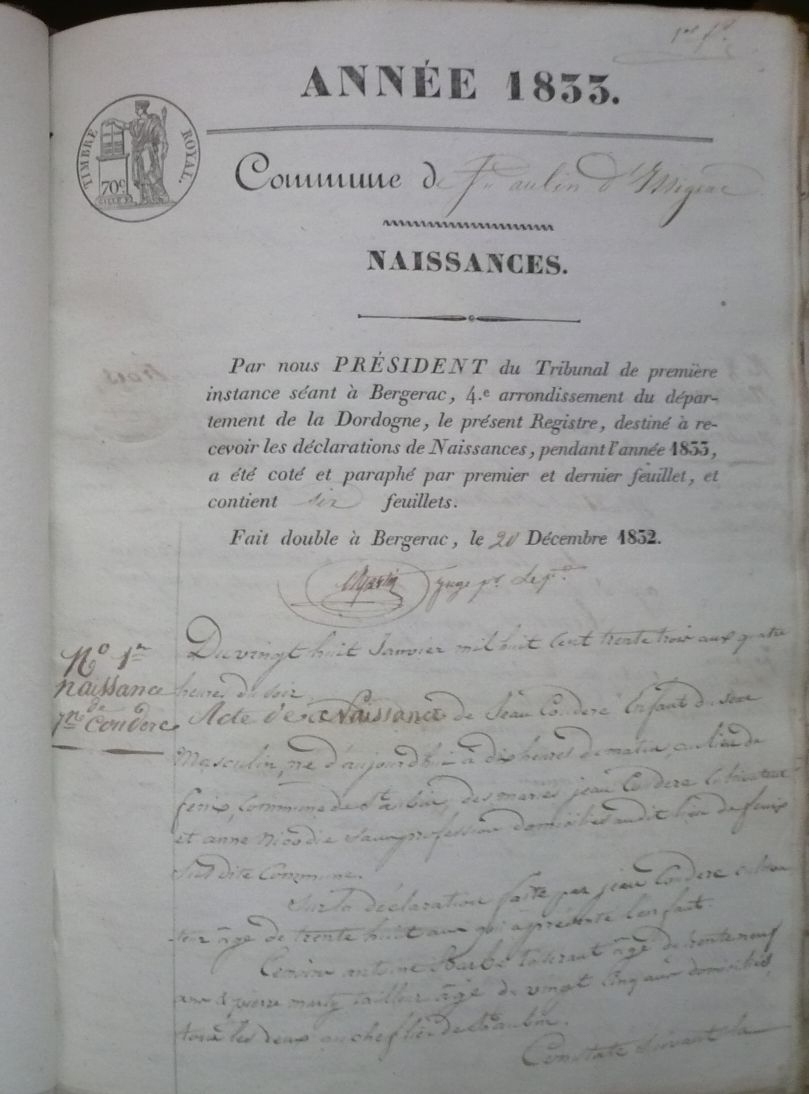 1er f.
ANNÉE 1833.
TIMBRE ROYAL.
70c
Commune de St aulin d'Issigeac
NAISSANCES.
Par nous PRÉSIDENT du Tribunal de première
instance séant à Bergerac, 4.e arrondissement du dépar-
tement de la Dordogne, le présent Registre, destiné à re-
cevoir les déclarations de Naissances, pendant l'année 1833,
a été coté et paraphé par premier et dernier feuillet, et
contient six feuillets.
Fait double à Bergerac, le 20 Décembre 1832.
Juge
No 1er
naissance
de
Couderc
Du vingt huit Janvier mil huit cent trente trois aux quatre
heures du soir
Acte de Naissance de Jean Couderc Enfant du sexe
Masculin, né d'aujourdhui à dix heures du matin, au lieu de
fenix, Commune de St aubin, des mariés jean Couderc Cultivateur
et anne sans profession domiciliés audit lieu de fenix
susdite Commune.
Sur la déclaration faite par jean Couderc cultiva
teur âgé de trente huit ans qui a présenté l'enfant.
Temoins antoine âgé de trente neuf
ans & pierre marty tailleur âgé de vingt cinq ans domiciliés
tous les deux au chef lieu de St aubin.
Constaté suivant la